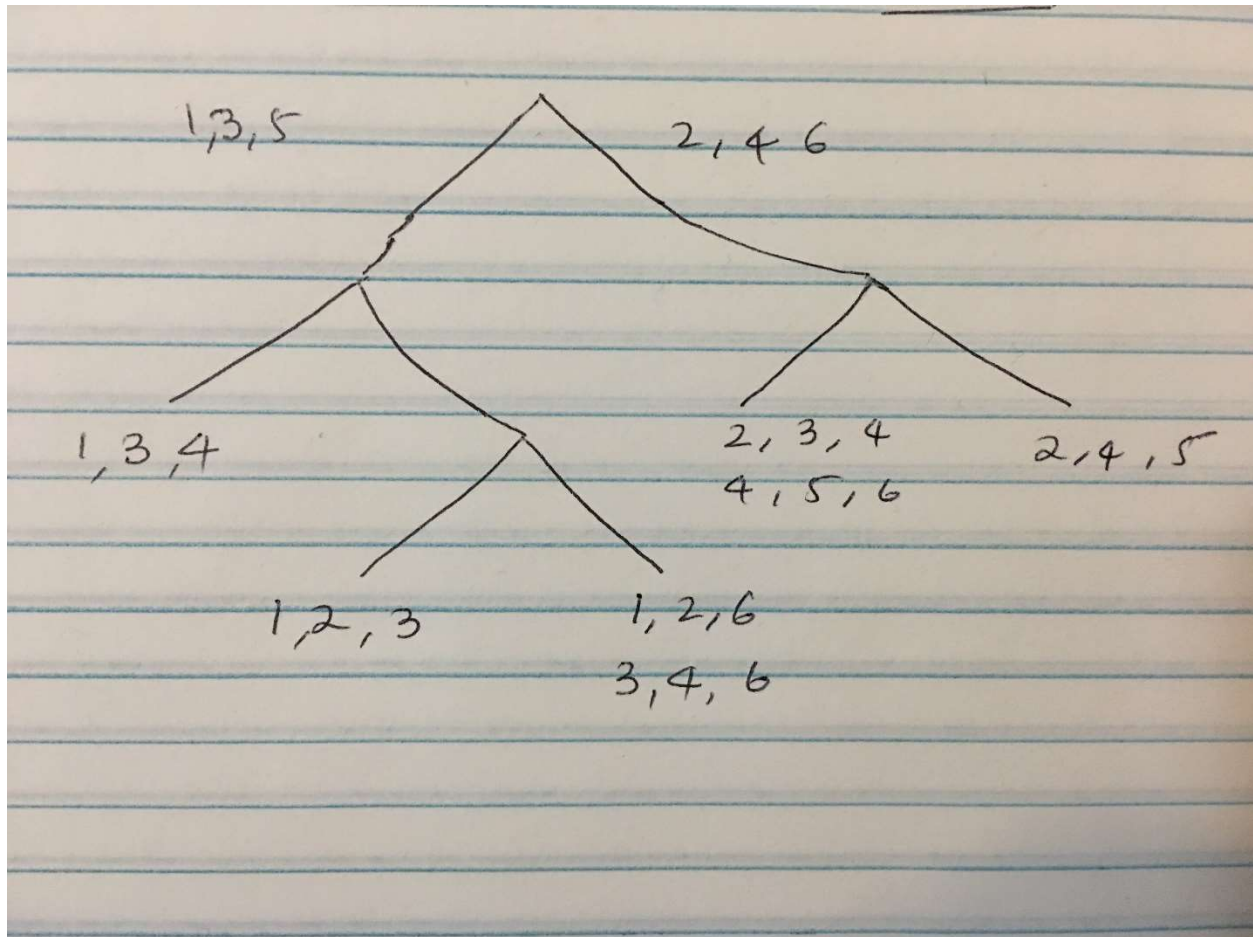 1,3,5
2,4 6
1,3,4
2,3,4
4,5,6
2,4,5
1,2,3
1,2,6
3,4,6